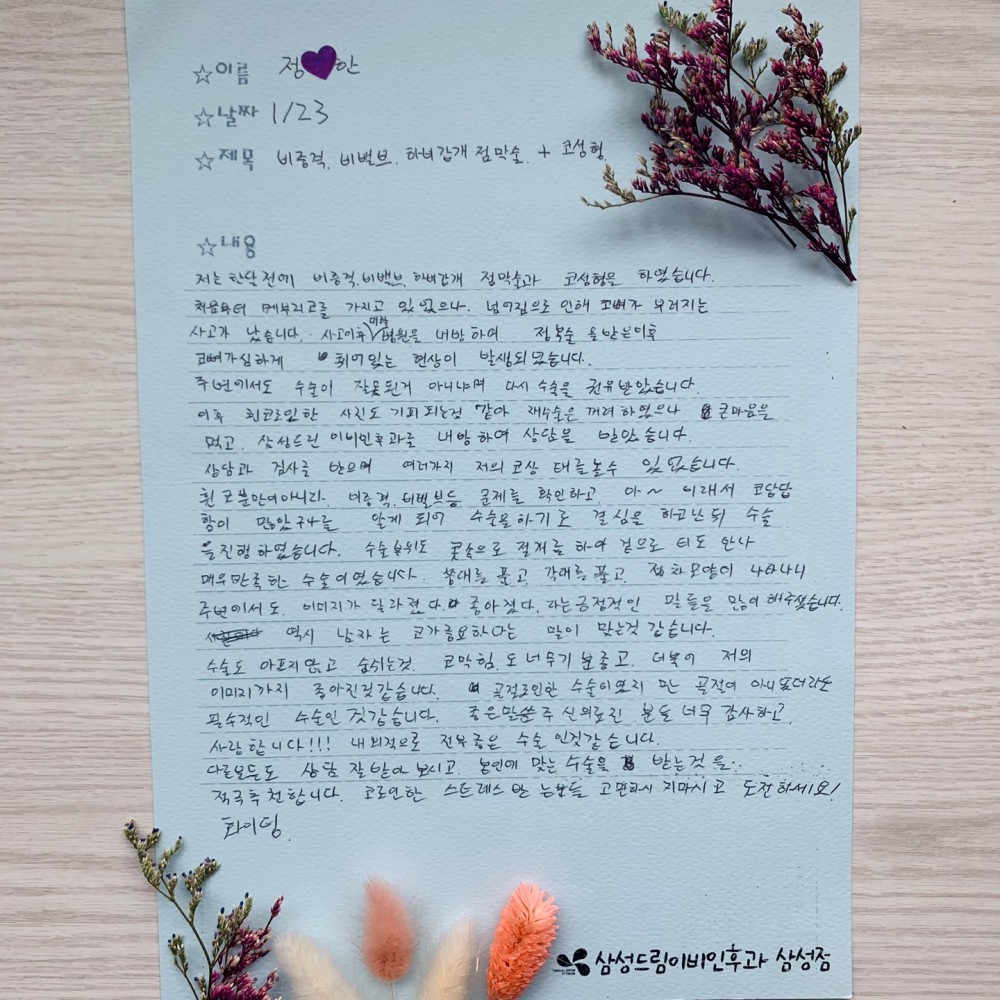 ☆이름 정♥안
☆날짜 1/23
☆제목 비중격, 비밸브, 하비갑개 점막술, + 코성형
☆내용
저는 한달전에 비중격, 비밸브, 하비갑개 점막술과 코성형을 하였습니다.
처음부터 메부리코를 가지고 있었으나. 넘어짐으로 인해 코뼈가 부러지는
사고가 났습니다. 사고이후 병원을 내방하여 정복술을 받은이후
코뼈가심하게 휘어있는 현상이 발생되었습니다.
주변에서도 수술이 잘못된거 아니냐며 다시 수술을 권유받았습니다
이후 휜코로인한 사진도 기피되는것 같아 재수술은 꺼려하였으나 큰마음을
먹고. 삼성드림 이비인후과를 내방하여 상담을 받았습니다.
상담과 검사를 받으며 여러가지 저의 코상태를볼수 있었습니다.
휜코뿐만이아니라. 비중격, 비밸브등 문제를 확인하고. 아~ 이래서 코답답
함이 많았구나를 알게 되어 수술을하기로 결심을 하고난뒤 수술
을진행하였습니다. 수술부위도 콧속으로 절개를 하여 겉으로 티도 안나
매우만족한 수술이였습니다. 붕대를 풀고, 각대를풀고, 점차모양이 나타나니
주변에서도. 이미지가 달라졌다. 좋아졌다. 라는긍정적인 말들을 많이해주셨습니다.
역시 남자는 코가중요하다는 말이 맞는것 같습니다.
수술도 아프지않고 숨쉬는것. 코막힘.도 너무기분좋고. 더불어 저의
이미지까지 좋아진것같습니다. 골절로인한 수술이였지만 골절이 아니였더라도
필수적인 수술인것같습니다. 좋은말씀주신의료진 분들 너무 감사하고.
사랑합니다!!! 내외적으로 전부좋은 수술인것같습니다.
다른분들도 상담 잘받아 보시고. 본인에 맞는수술을 받는것을..
적극추천합니다. 코로인한 스트레스 받는분들 고민하시지마시고 도전하세요!
화이팅.
삼성드림이비인후과 삼성점